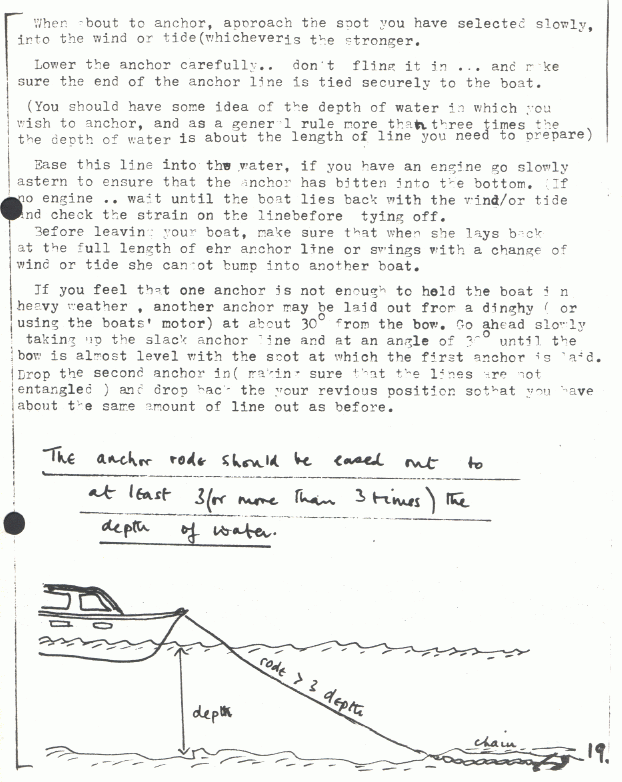 When about to anchor, approach the spot you have selected slowly,
into the wind or tide(whicheveris the stronger.
Lower the anchor carefully.. don't fling it in ... and make
sure the end of the anchor line is tied securely to the boat.
(You should have some idea of the depth of water in which you
wish to anchor, and as a general rule more than three times the
the depth of water is about the length of line you need to prepare)
Ease this line into the water, if you have an engine go slowly
astern to ensure that the anchor has bitten into the bottom. (If
no engine .. wait until the boat lies back with the wind/or tide
and check the strain on the linebefore tying off.
Before leaving your boat, make sure that when she lays back
at the full length of ehr anchor line or swings with a change of
wind or tide she cannot bump into another boat.
If you feel that one anchor is not enough to hold the boat i n
heavy weather , another anchor may be laid out from a dinghy ( or
using the boats' motor) at about 30° from the bow. Go ahead slowly
taking up the slack anchor line and at an angle of 30° until the
bow is almost level with the spot at which the first anchor is laid.
Drop the second anchor in( making sure that the lines are not
entangled ) and drop back the your revious position sothat you have
about the same amount of line out as before.
The anchor rode should be eased out to
at least 3(or more than 3 times) the
depth of water.
rode > 3 depth
depth
chain
19.